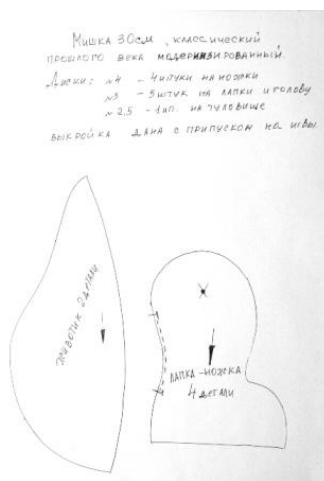 Мишка 30см, классический
прошлого века модернизированный.
Диски: №4 - 4штуки на ножки
№3 - 5штук на лапки и голову
№2,5 - 1шт. на туловище
выкройка дана с припуском на швы
животик 2 детали
лапка-ножка
4 детали